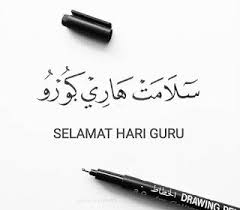 سَلَامَتْ هَارِيْ ݢُوْرُوْ
SELAMAT HARI GURU
الخطاط DRAWING